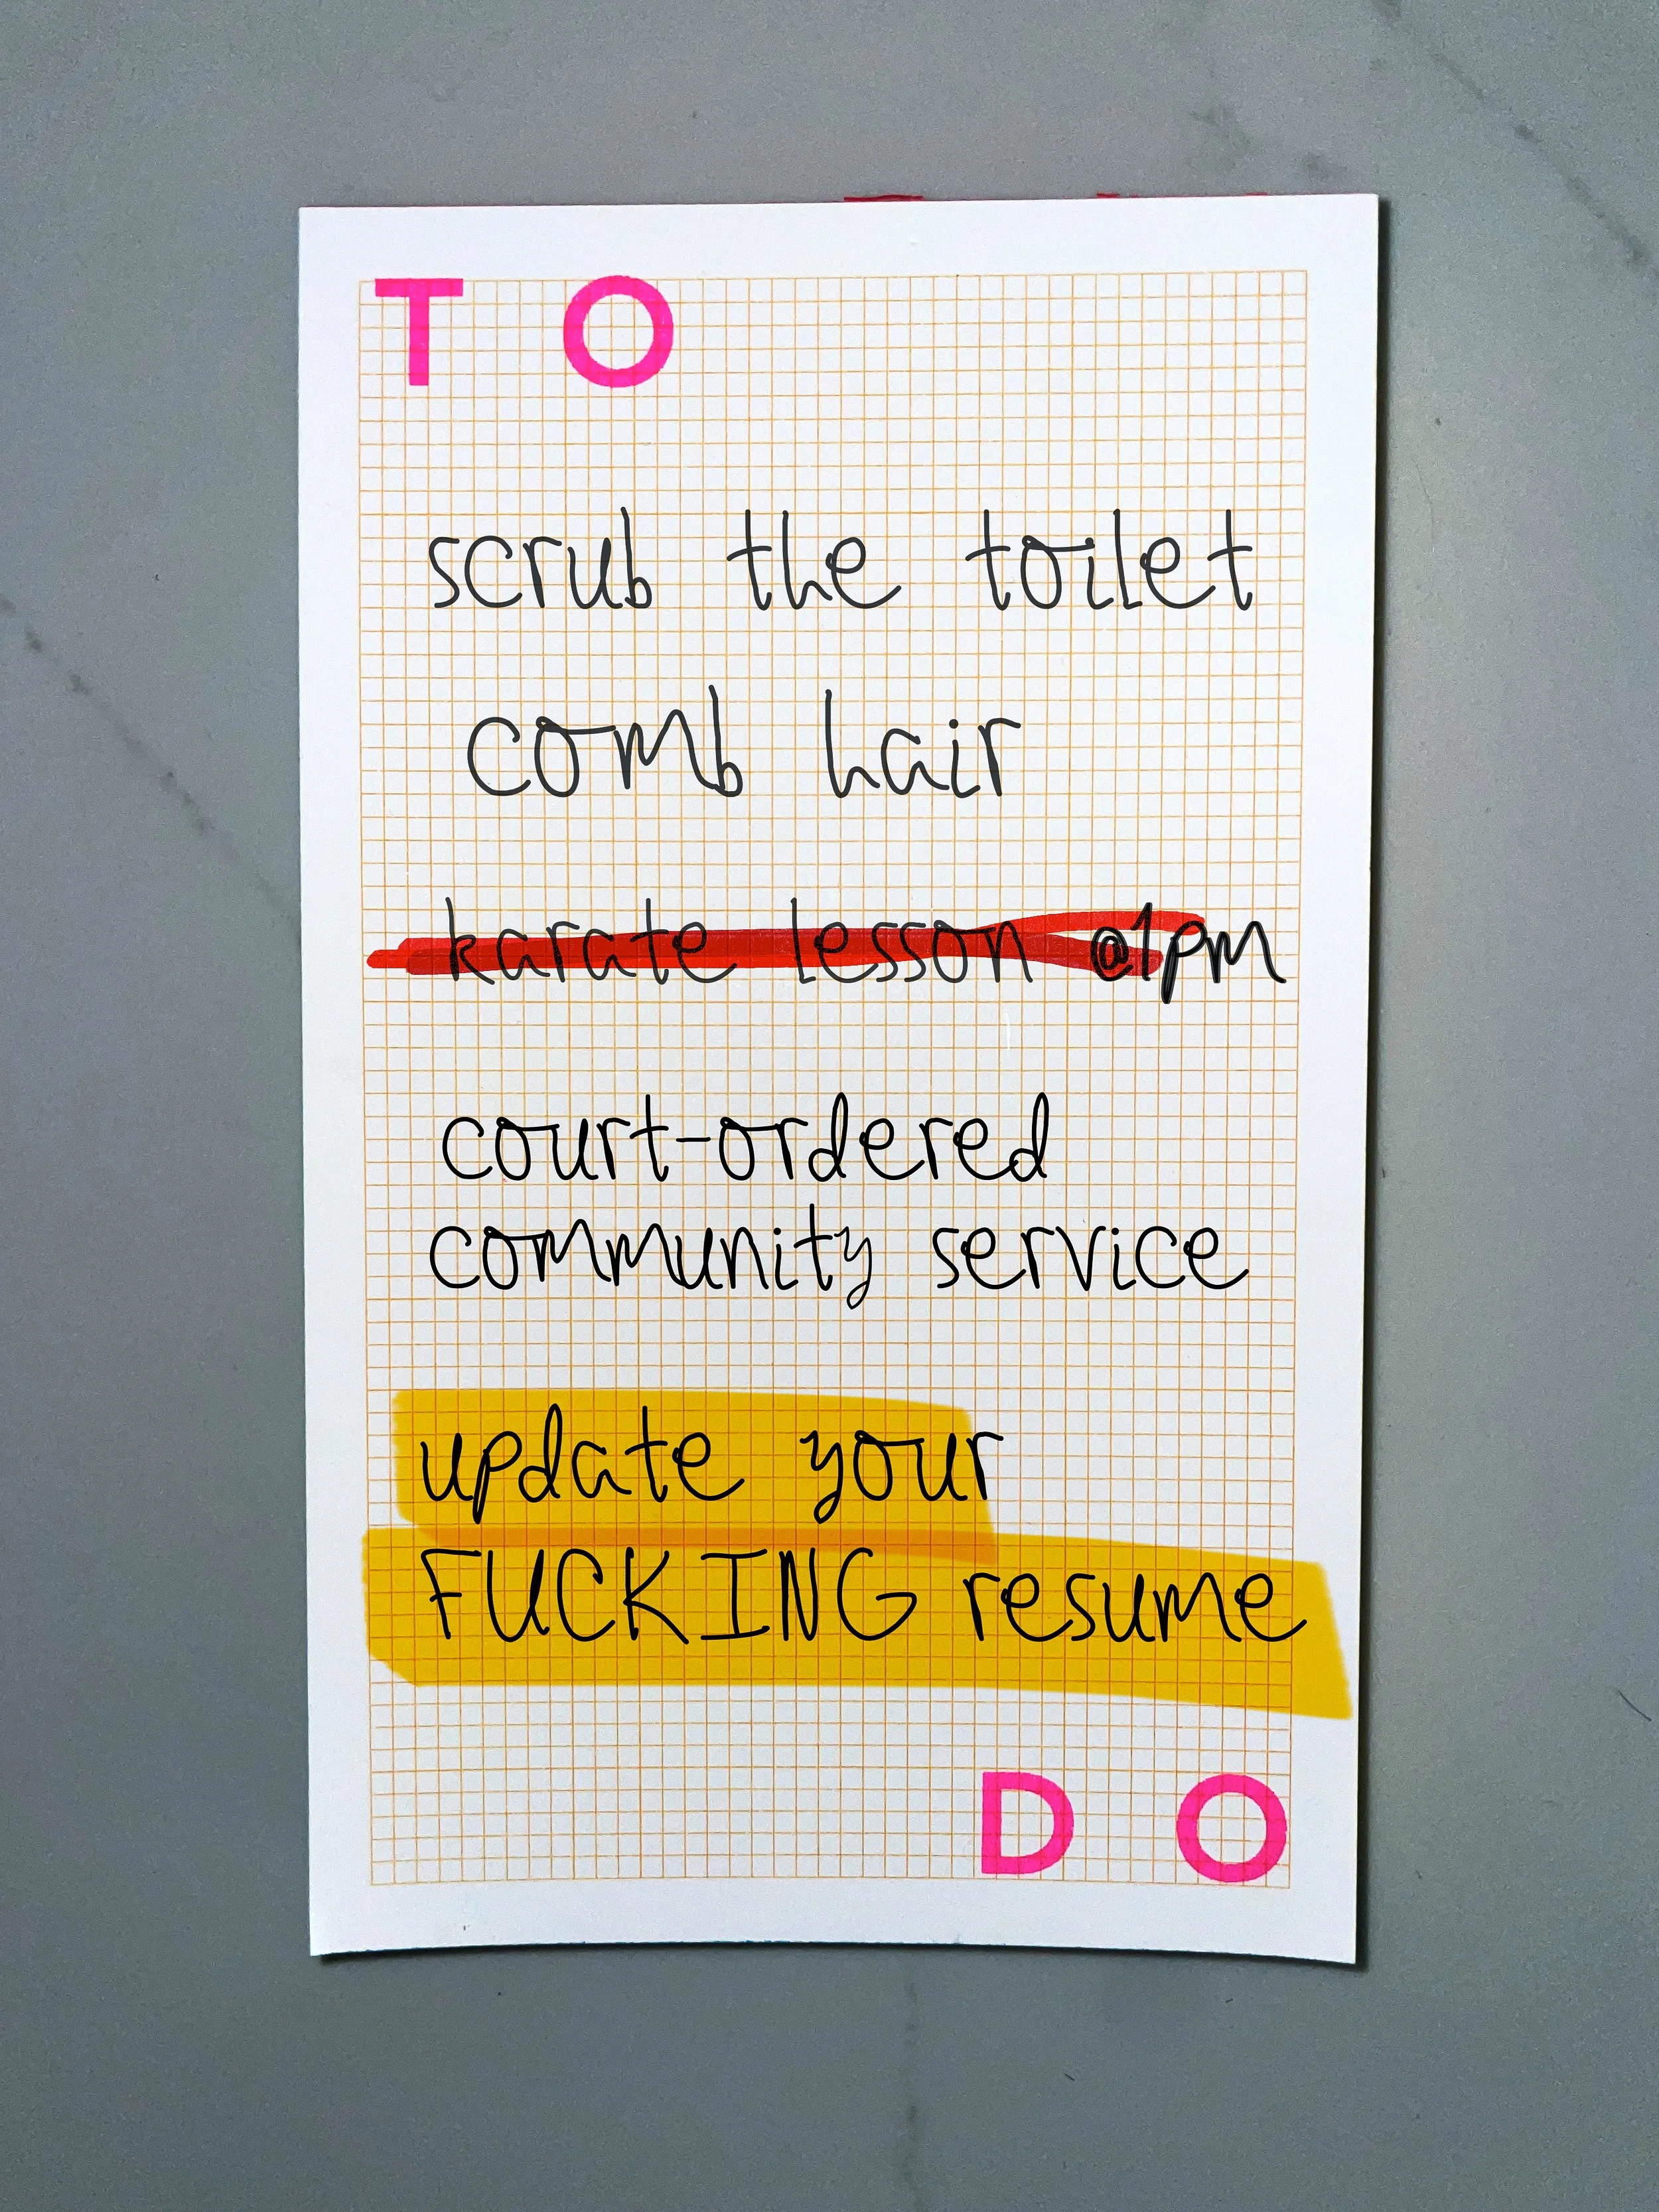 TO
scrub the toilet
comb hair
karate lesson @1pm
court-ordered
community service
update your
FUCKING resume
DO